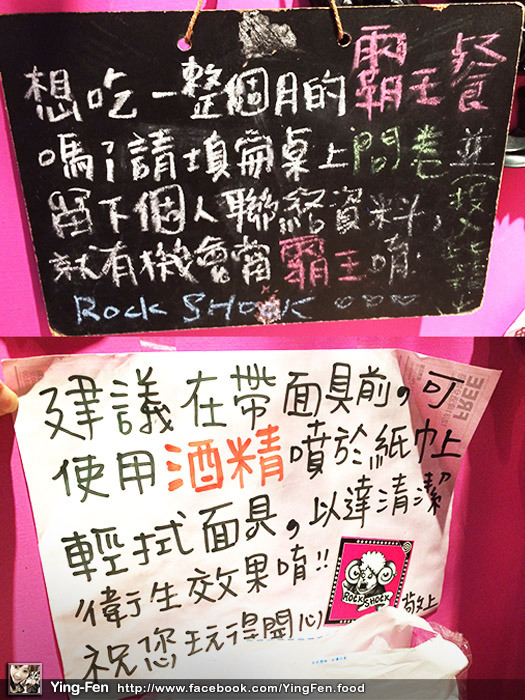 想吃一整個月的霸王餐
嗎?請填寫桌上問卷並
留下個人聯絡資料,投
就有機會當霸王唷
Rock SHOCK 。。。
建議在帶面具前。可
使用酒精噴於紙巾上
輕拭面具。以達清潔
衛生效果唷!!
ROCK SHOCK
敬上
祝您玩得開心
FREE
Ying-Fen http://www.facebook.com/YingFen.food